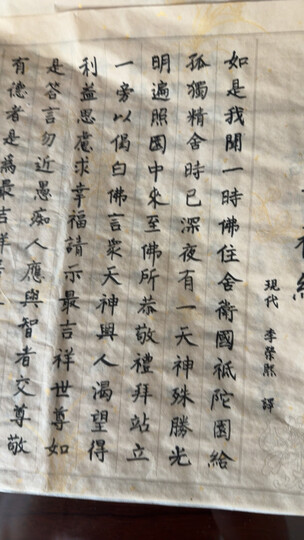 現代 李榮熙 譯
如是我聞一時佛住舍衛國祗陀園給
孤獨精舍時已深夜有一天神殊勝光
明遍照園中來至佛所恭敬禮拜站立
一旁以偈白佛言眾天神與人渴望得
利益思慮求幸福請示最吉祥世尊如
是答言勿近愚痴人應與智者交尊敬
有德者是為最吉祥